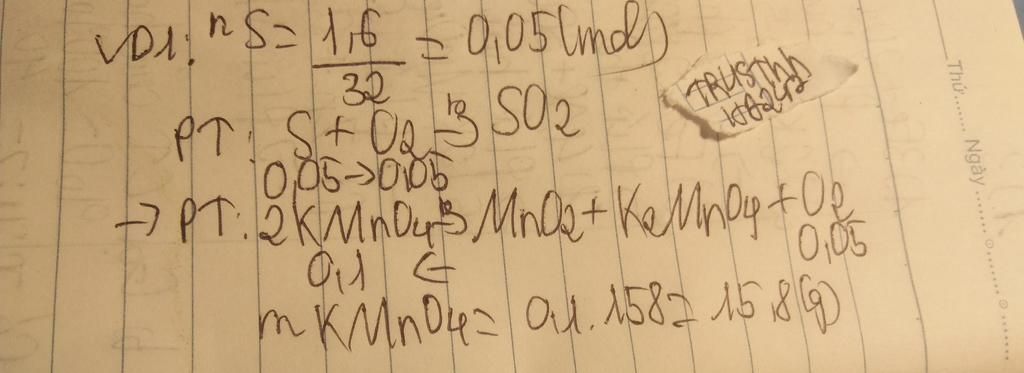 VD1: nS = 1,6/32 = 0,05 (mol)
PT: S + O2 → SO2
0,05 → 0,05
→ PT: 2KMnO4 → MnO2 + K2MnO4 + O2
0,1 ← 0,05
mKMnO4 = 0,1.158 = 15,8(g)
Thứ...... Ngày......